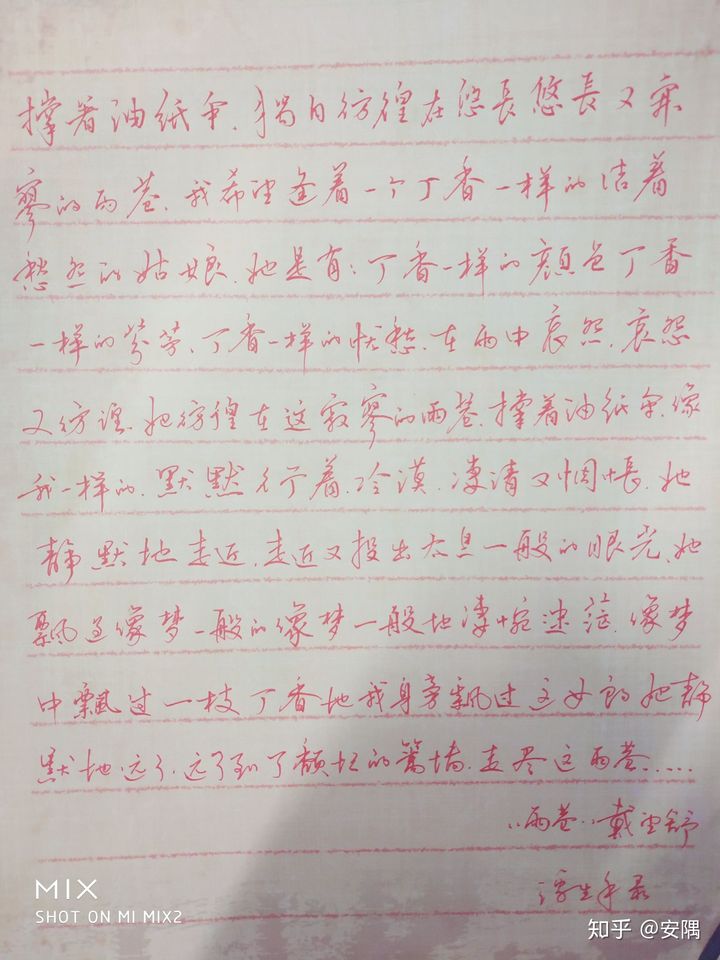 撑着油纸伞、独自彷徨在悠長悠長又寂
寥的雨巷、我希望逢着一个丁香一样的结着
愁怨的姑娘、她是有：丁香一样的颜色丁香
一样的芬芳、丁香一样的忧愁、在雨中哀怨、哀怨
又彷徨、她彷徨在这寂寥的雨巷、撑着油纸伞、像
我一样的、默默彳亍着、冷漠、凄清又惆怅、她
静默地走近、走近又投出太息一般的眼光、她
飘过像梦一般的像梦一般地凄婉迷茫、像梦
中飘过一枝丁香地我身旁飘过这女郎她静
默地远了、远了到了颓圮的篱墙、走尽这雨巷.....
雨巷、戴望舒
浮生手录
MIX
SHOT ON MI MIX2
知乎 @安隅